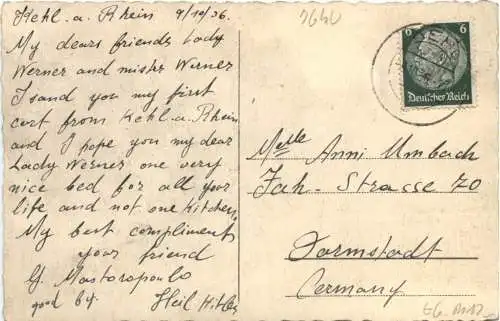 Kehl. a. Rhein 9/10/36.
My dears friends Lady
Werner and mister Werner
I sand you my first
cart from Kehl. a. Rhein
and I hope you my dear
Lady Werner one very
nice bed for all your
life and not one Kitchen.
My best compliment
your friend
G. Mastoropoulo
good by. Heil Hitler
3640
6 6
Deutsches Reich
Melle Anni Umbach
Jah - Strasse 70
Darmstadt
Cermany